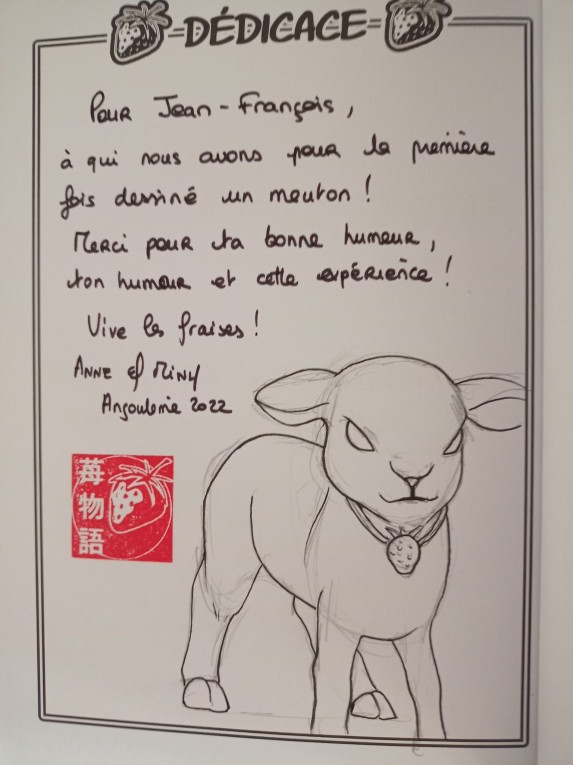 DÉDICACE
Pour Jean-François,
à qui nous avons pour la première
fois dessiné un mouton !
Merci pour ta bonne humeur,
ton humour et cette expérience !
Vive les fraises !
Anne & Minh
Angoulême 2022
苺物語